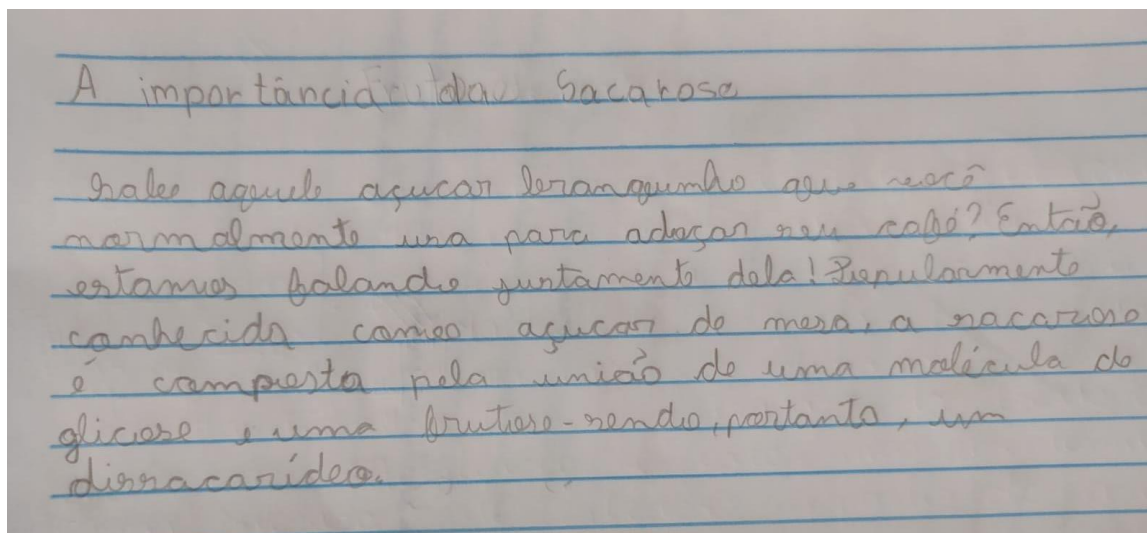 A importância da Sacarose
Sabe aquele açucar branquinho que você
normalmente usa para adoçar seu café? Então,
estamos falando justamente dela! Popularmente
conhecida como açucar de mesa, a sacarose
é composta pela união de uma molécula de
glicose e uma frutose-sendo, portanto, um
dissacarídeo.